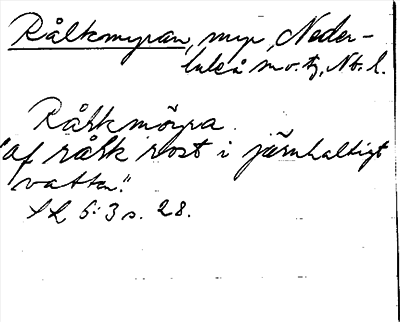 Rålkmyran, myr, Neder-
luleå sn o. tg, Nb. l.
Rålkmöɽra
"af rålk rost i järnhaltigt
vatten".
SL 5:3 s. 28.